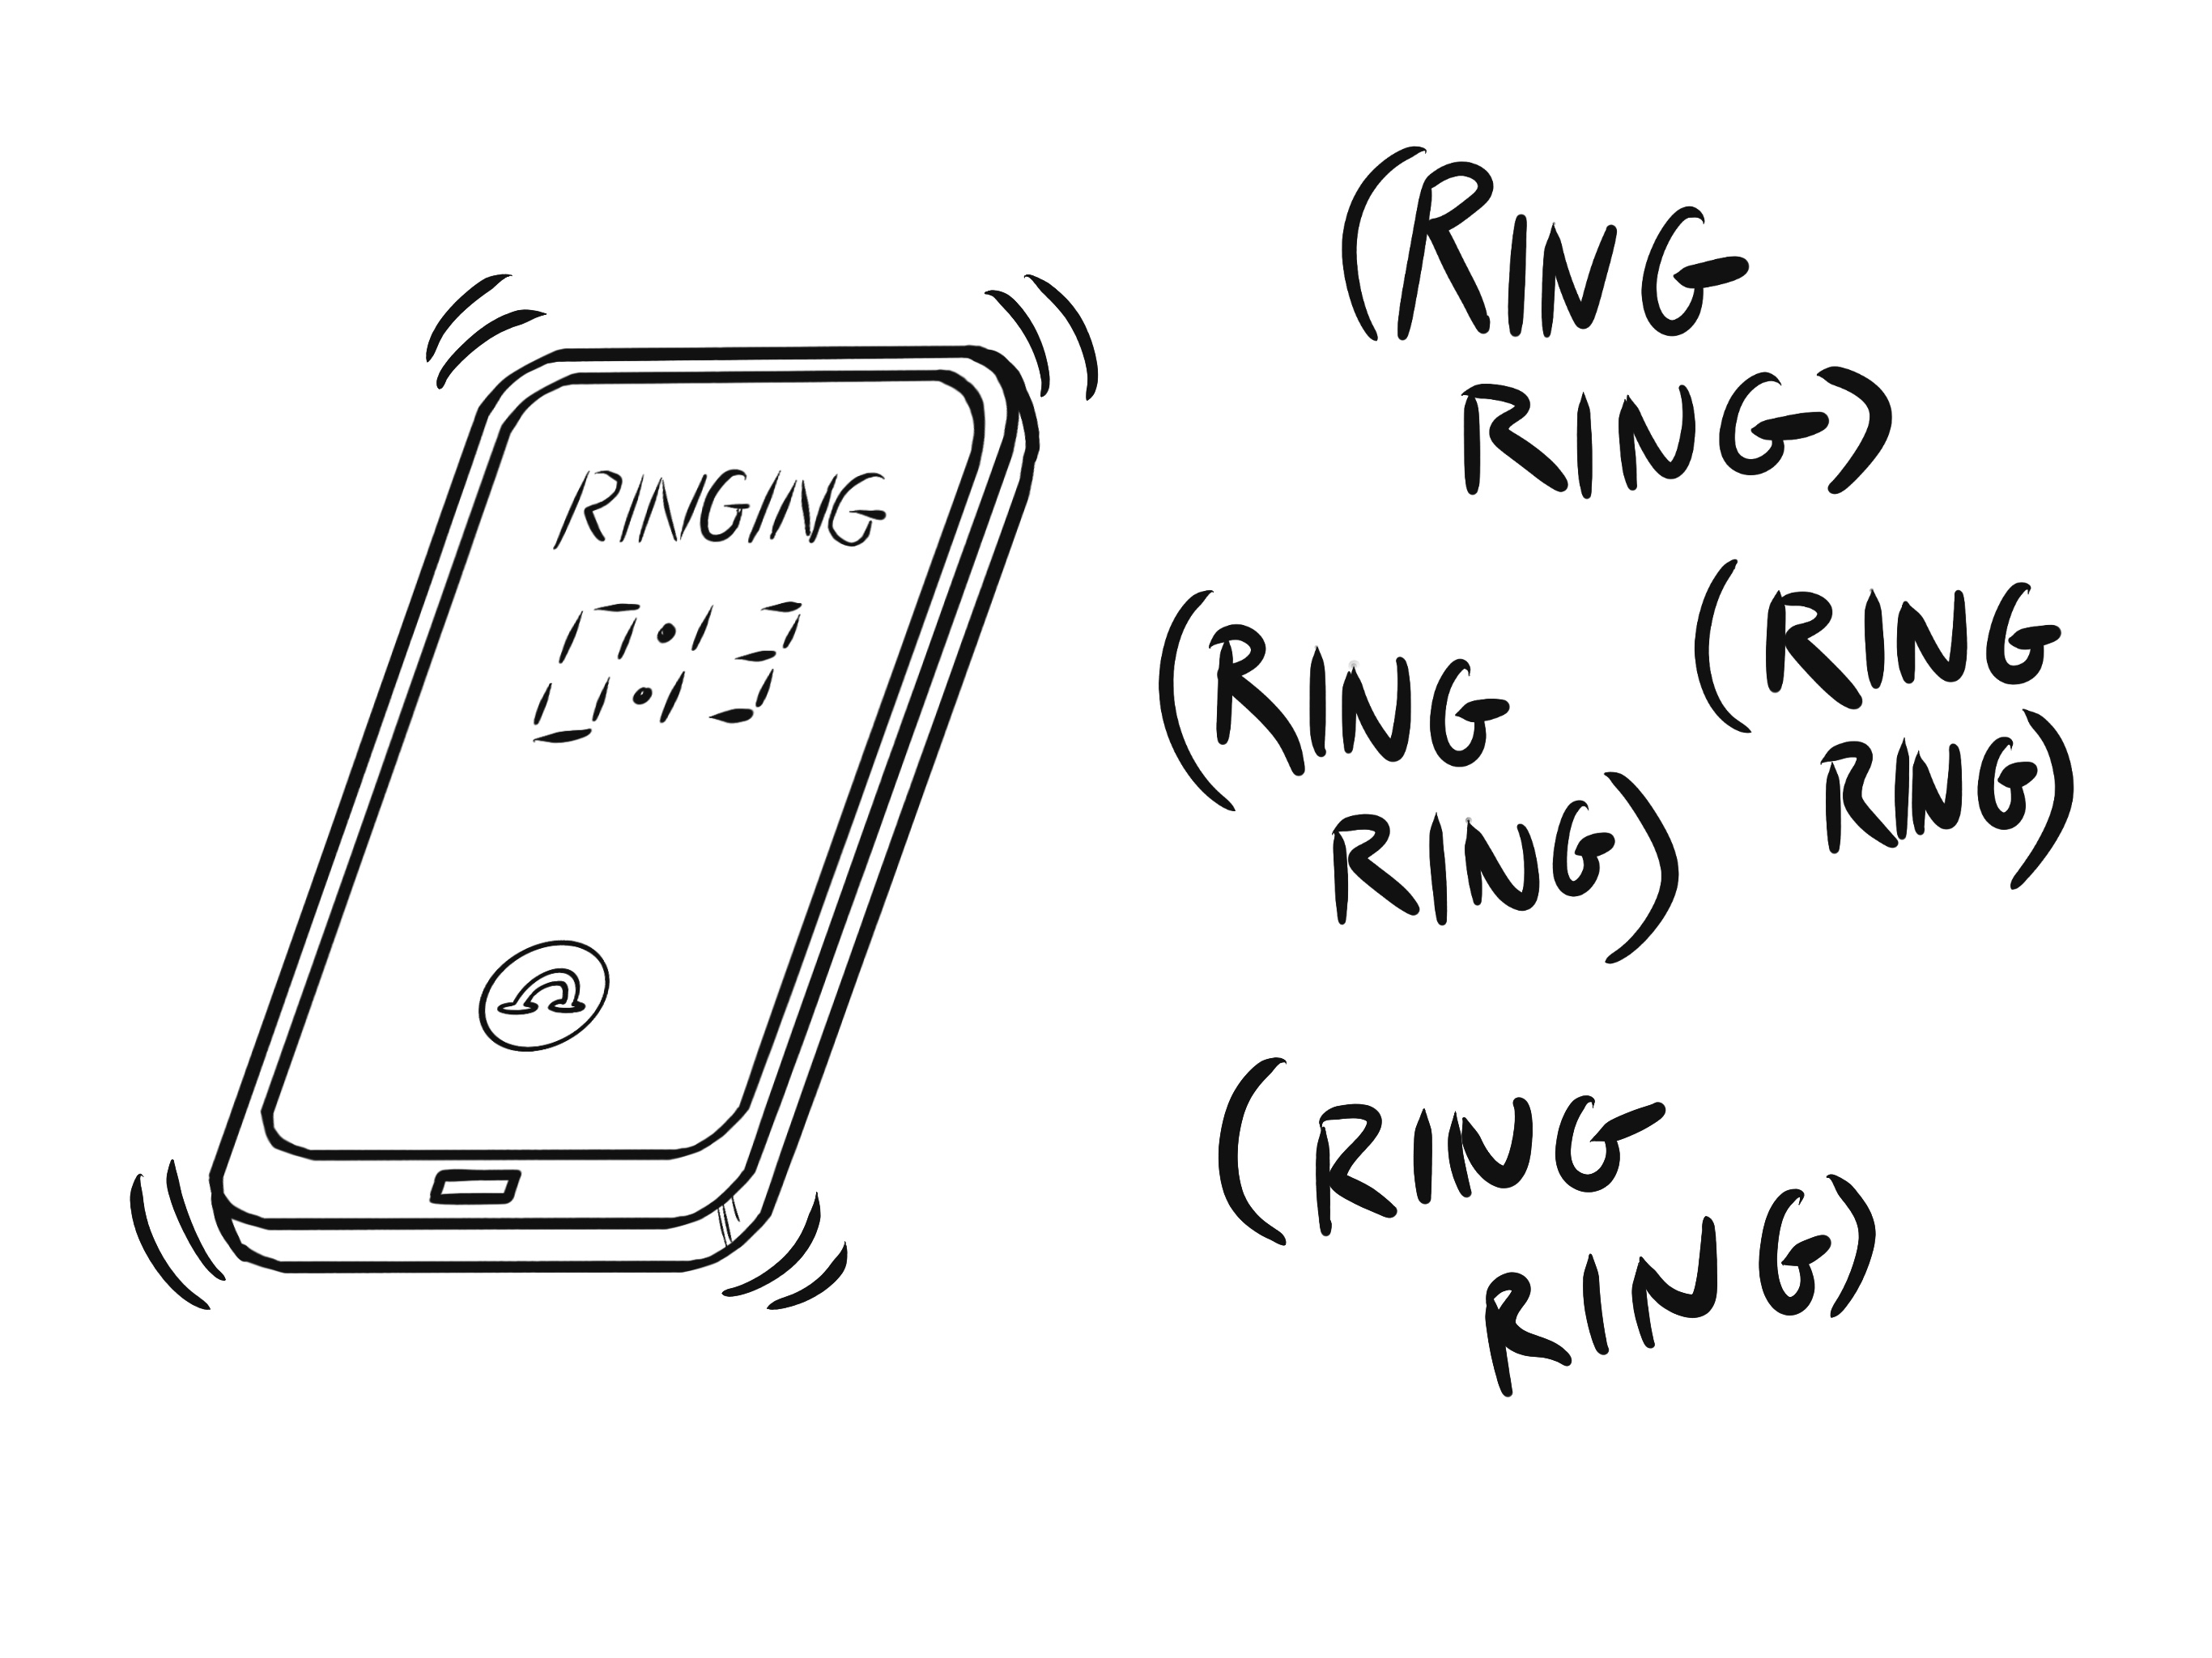 RINGING
0:13
(RING
RING)
(RING
RING)
(RING
RING)
(RING
RING)